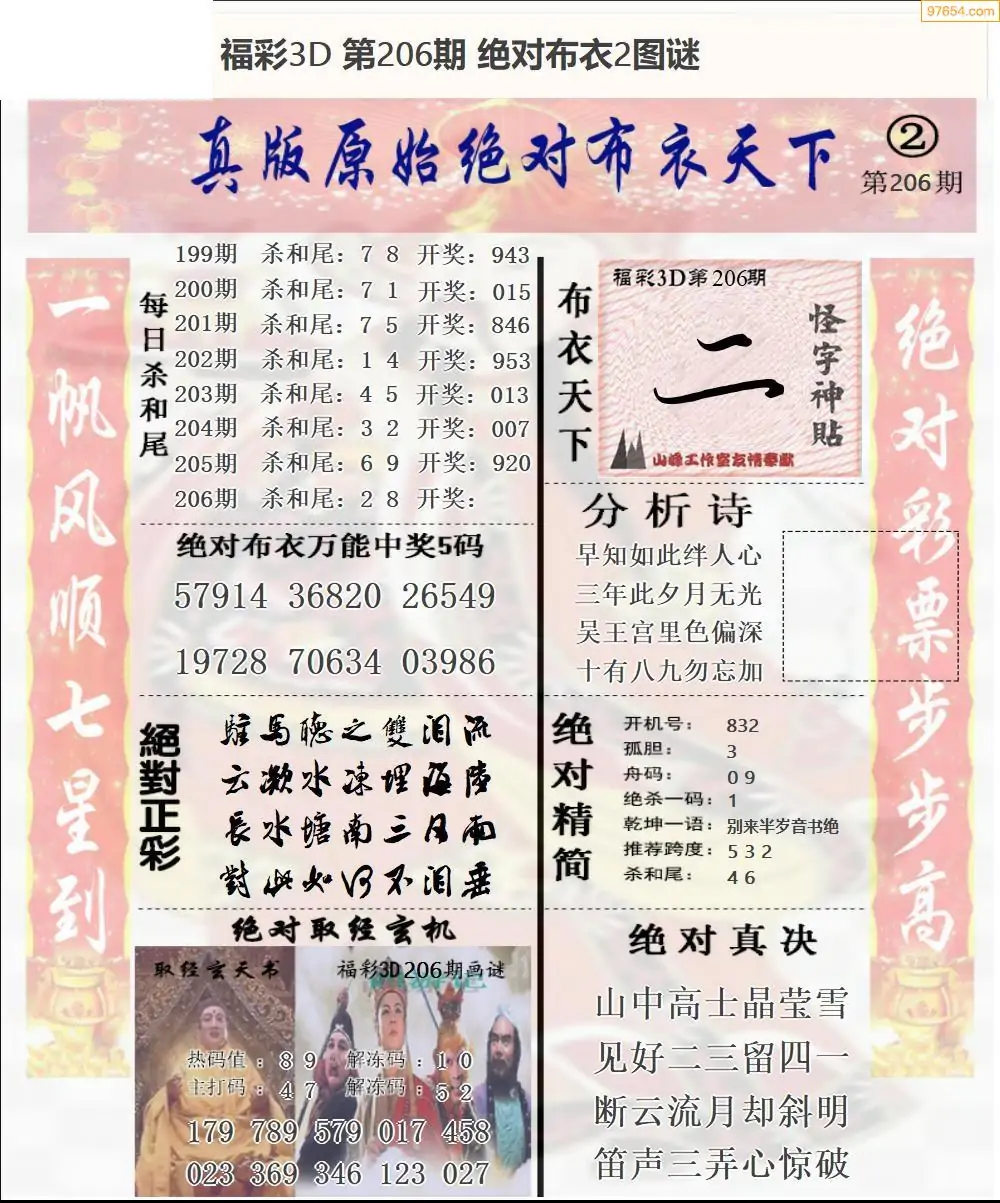 97654.com
福彩3D 第206期 绝对布衣2图谜
真版原始绝对布衣天下
②
第206期
一帆风顺七星到
每日杀和尾
199期 杀和尾：7 8 开奖：943
200期 杀和尾：7 1 开奖：015
201期 杀和尾：7 5 开奖：846
202期 杀和尾：1 4 开奖：953
203期 杀和尾：4 5 开奖：013
204期 杀和尾：3 2 开奖：007
205期 杀和尾：6 9 开奖：920
206期 杀和尾：2 8 开奖：
绝对布衣万能中奖5码
57914 36820 26549
19728 70634 03986
絕對正彩
駐馬聽之雙泪流
云濑水凍埋海陸
長水塘南三月雨
對此如何不泪垂
绝对取经玄机
取经玄天书
福彩3D206期画谜
热码值：8 9 解冻码：1 0
主打码：4 7 解冻码：5 2
179 789 579 017 458
023 369 346 123 027
布衣天下
福彩3D第206期
二
怪字神貼
山峰工作室友情奉献
分析诗
早知如此绊人心
三年此夕月无光
吴王宫里色偏深
十有八九勿忘加
绝对精简
开机号：832
孤胆：3
舟码：0 9
绝杀一码：1
乾坤一语：别来半岁音书绝
推荐跨度：5 3 2
杀和尾：4 6
绝对真决
山中高士晶莹雪
见好二三留四一
断云流月却斜明
笛声三弄心惊破
绝对彩票步步高